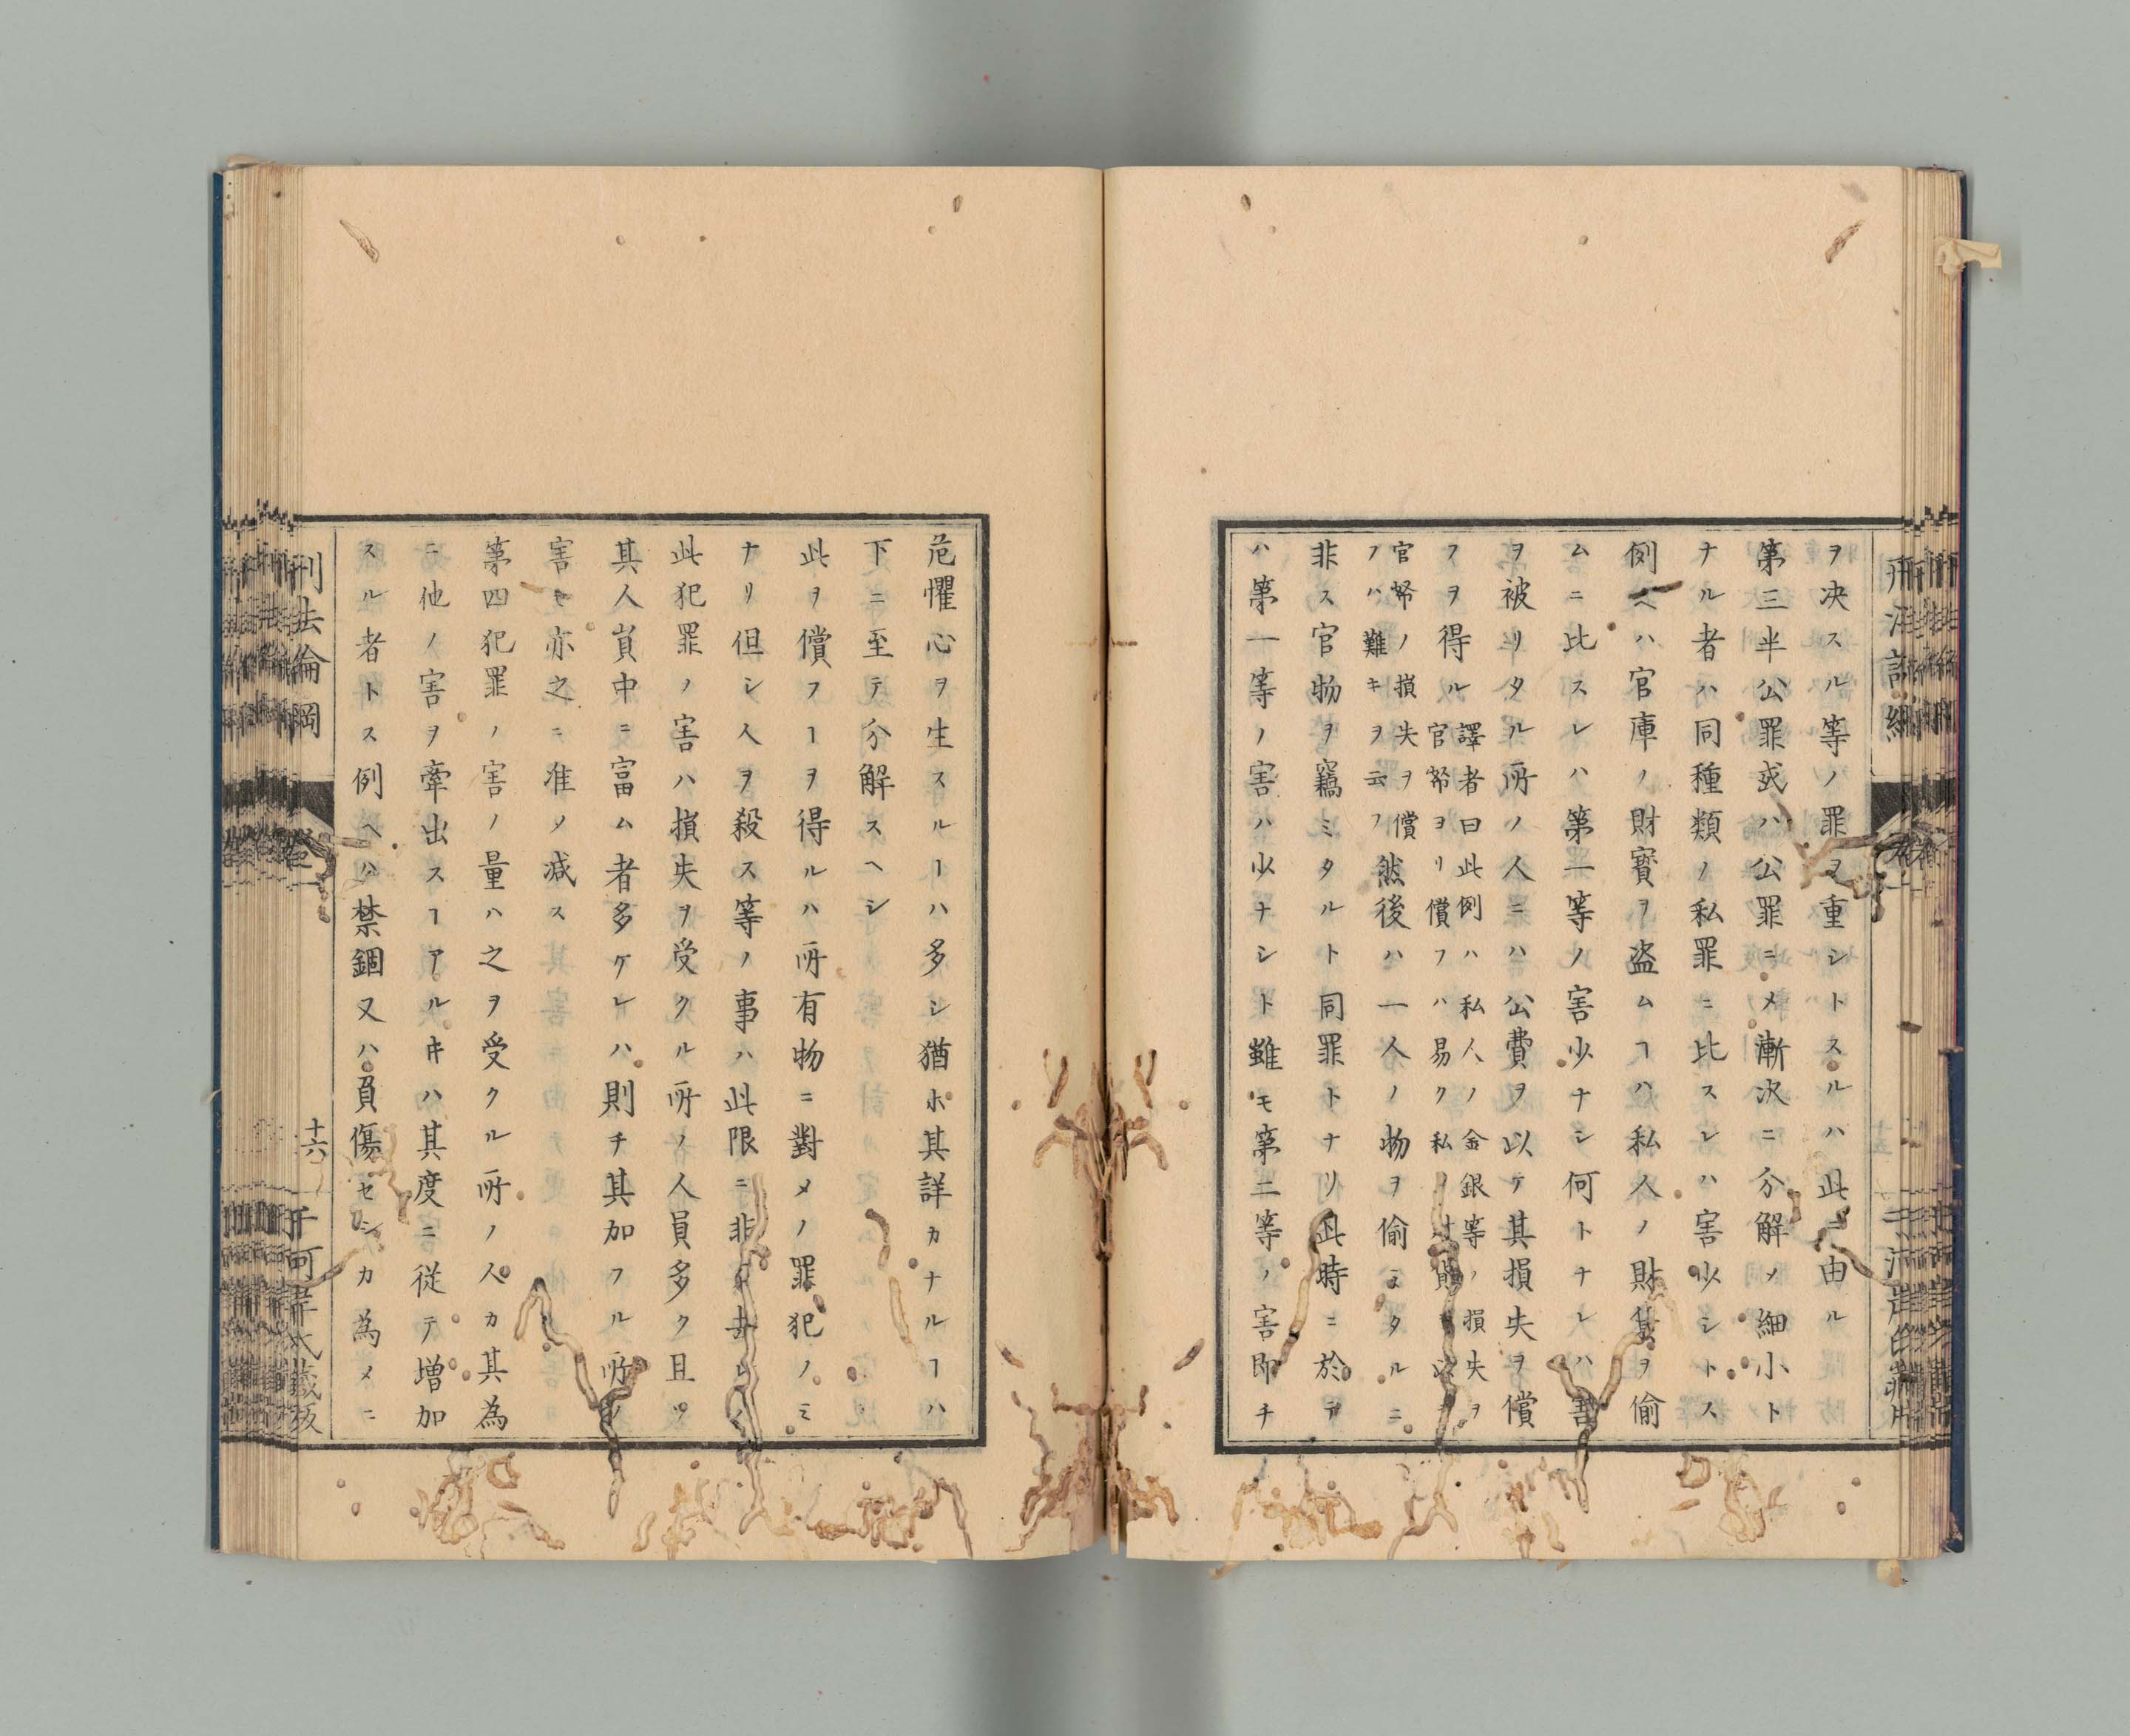 ヲ決スル等ノ罪ヲ重シトスルハ此ニ由ル
第三半公罪或ハ公罪ニメ漸次ニ分解メ細小ト
ナル者ハ同種類ノ私罪ニ比スレハ害少シトス
例ヘハ官庫ノ財寳ヲ盗ムヿハ私人ノ財ヲ偷
ムニ比スレハ第一等ノ害少ナシ何トナレハ害
ヲ被リタル所ノ人ニハ公費ヲ以テ其損失ヲ償
フヲ得ル
譯者曰此例ハ私人ノ金銀等ノ損失ヲ
官帑ヨリ償フハ易ク私ノ財以テ
官帑ノ損失ヲ償
フハ難キヲ云フ
然後ハ一人ノ物ヲ偷ミタルニ
非ス官物ヲ竊ミタルト同罪トナリ此時ニ於テ
ハ第一等ノ害ハ少ナシト雖モ第二等ノ害即チ
危懼心ヲ生スルヿハ多シ猶ホ其詳カナルヿハ
下ニ至テ分解スヘシ
此ヲ償フヿヲ得ルハ所有物ニ對メノ罪犯ノミ
ナリ但シ人ヲ殺ス等ノ事ハ此限ニ非
此犯罪ノ害ハ損失ヲ受クル所ノ人員多ク且ツ
其人員中ニ富ム者多ケレハ則チ其加フル所ノ
害モ亦之ニ准メ減ス
第四犯罪ノ害ノ量ハ之ヲ受クル所ノ人カ其為
ニ他ノ害ヲ牽出スヿアルキハ其度ニ従テ増加
スル者トス例ヘハ禁錮又ハ負傷セシカ為メニ
刑法倫綱
十六